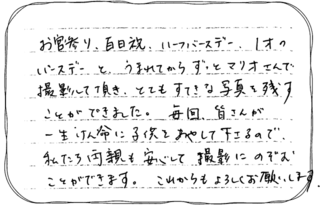 お宮参り、百日祝、ハーフバースデー、1才の
バースデーと、うまれてからずっとマリオさんで
撮影して頂き、とてもすてきな写真を残す
ことができました。毎回、皆さんが
一生けん命に子供をあやして下さるので、
私たち両親も安心して撮影にのぞむ
ことができます。これからもよろしくお願いします。